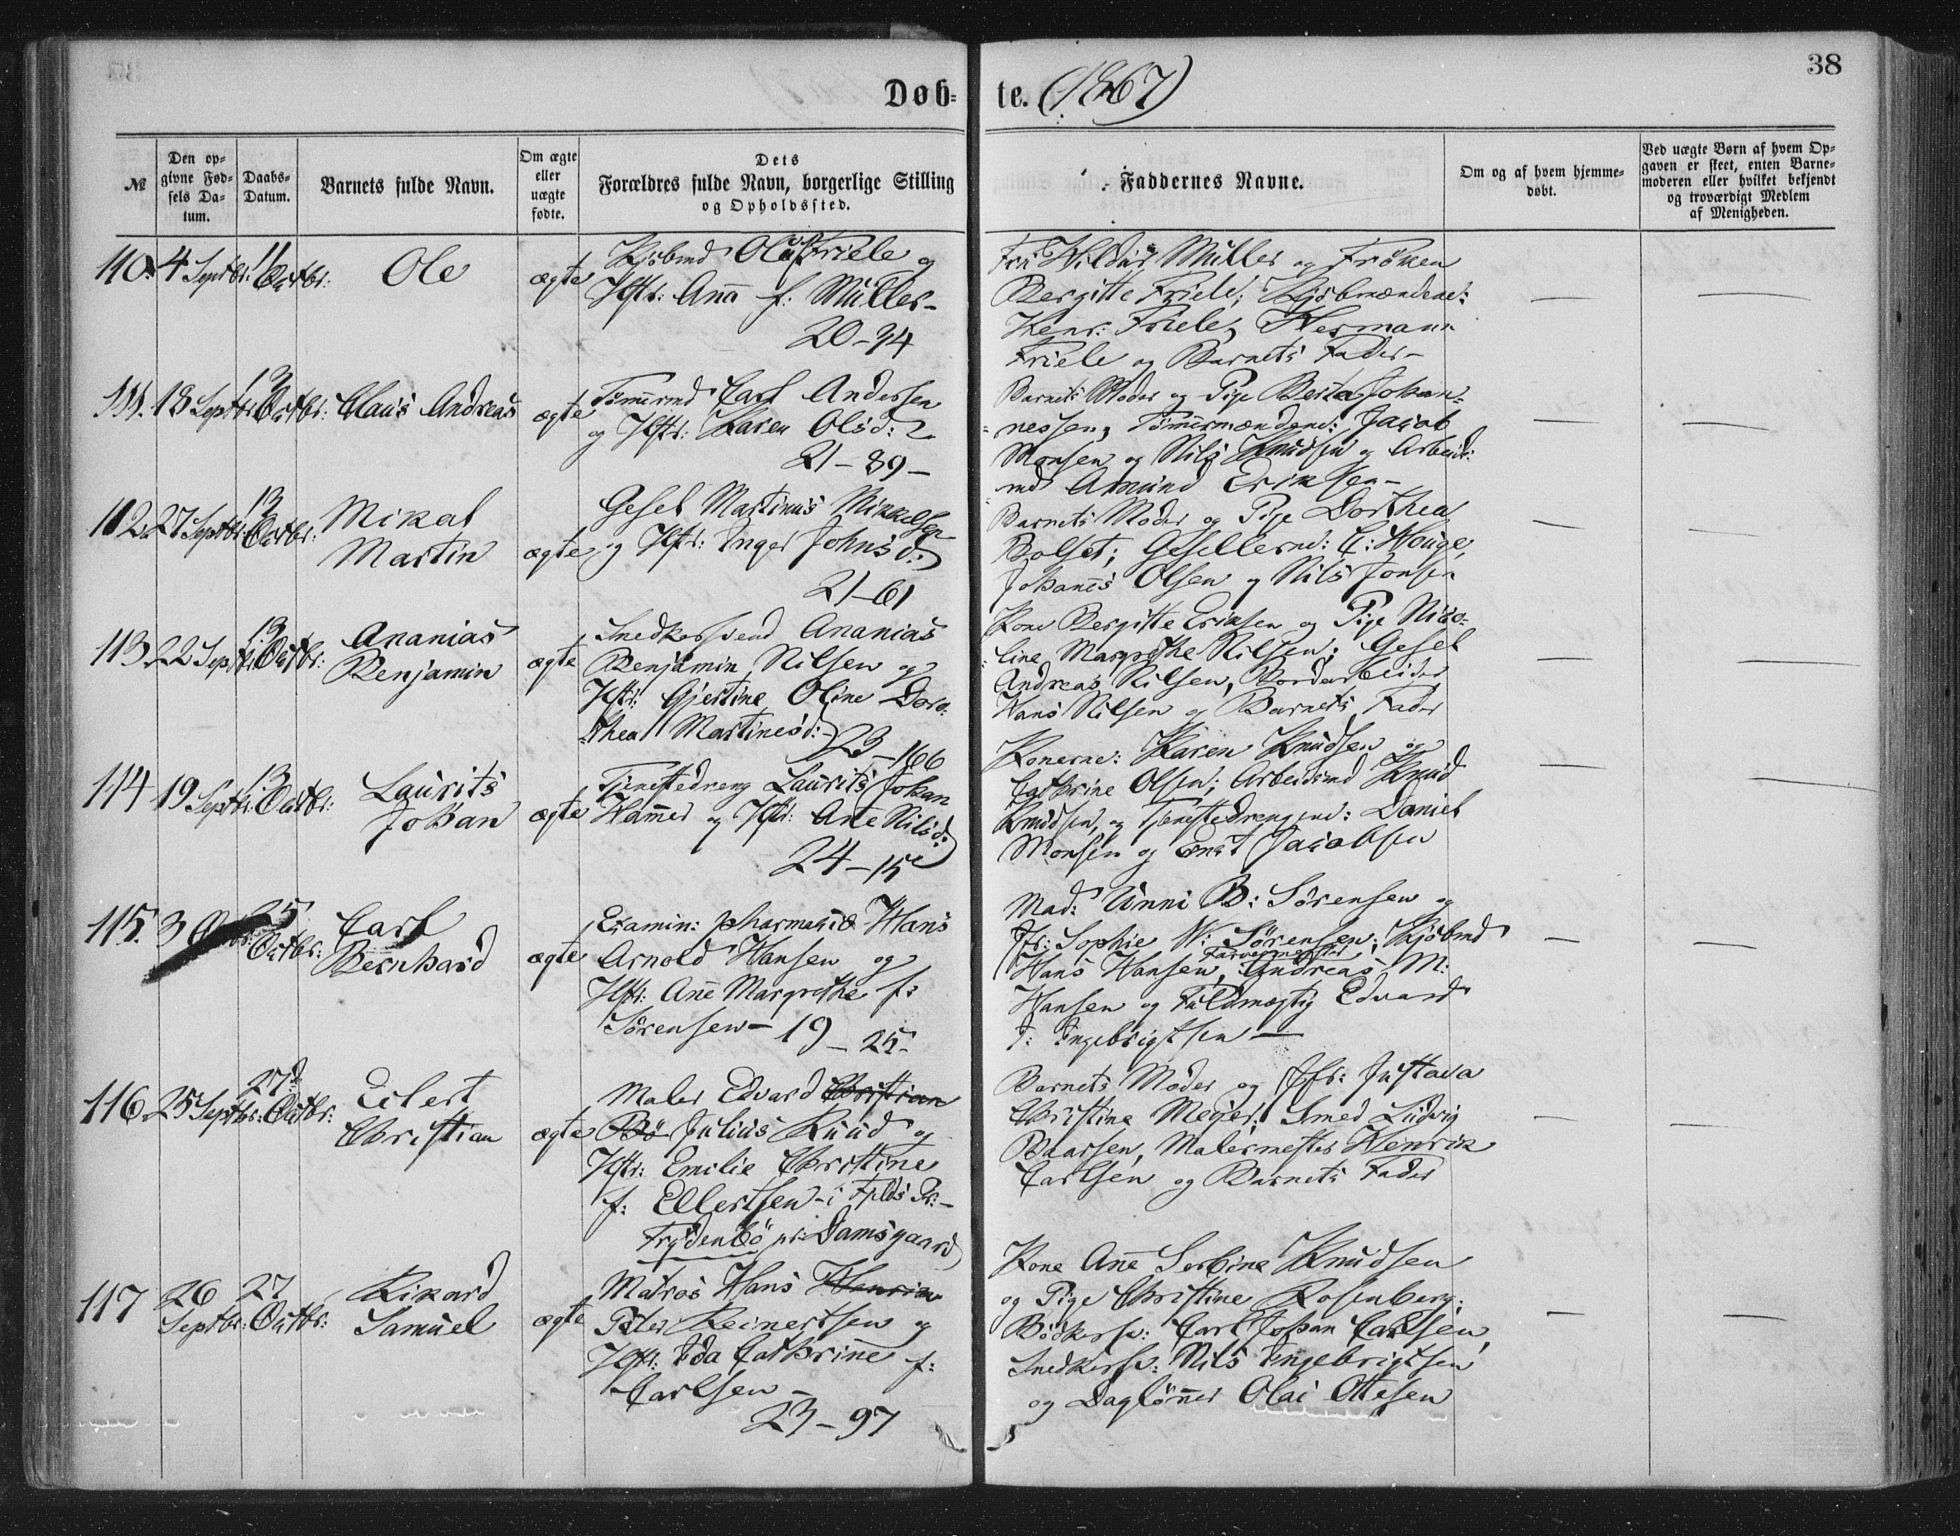 38
Døb- te. (1867)
№
Den op-
givne Fød-
sels Da-
tum.
Daabs-
Datum.
Barnets fulde Navn.
Om ægte
eller
uægte
fødte.
Dets
Forældres fulde Navn, borgerlige Stilling
og Opholdssted.
Faddernes Navne.
Om og af hvem hjemme-
døbt.
Ved uægte Børn af hvem Op-
gaven er skeet, enten Barne-
moderen eller hvilket bekjendt
og troværdigt Medlem
af Menigheden.
110. 4 Septbr: 11 Octbr: Ole ægte
Kjøbmd Ole Friele og
Hstr: Ana f: Müller-
20-34
Müller og Frøken
Bergitte Friele; Kjøbmændene:
Henr: Friele, Herman
Friele og Barnets Fader-
111. 18 Septbr: 13 Octbr: Claus Andreas ægte
Tømmrmd Carl Andersen
og Hstr: Karen Olsd:
21-89-
Barnets Moder og Pige Berta Johan-
nessen, Tømmermændene: Jacob
Monsen og Nils Knudsen og Arbeids:
md Amund Eriksen-
112. 27 Septbr: 13 Octbr: Mikal
Martin ægte
Gesel Martinus Mikkelsen
og Hstr: Inger Johnsd:
21-61
Barnets Moder og Pige Dorthea
Bolset; Gesellerne: C: Houge,
Johanes Olsen og Nils Jonsen
113. 22 Septbr: 13 Octbr: Ananias
Benjamin ægte
Snedkersvend Ananias
Benjamin Nilsen og
Hstr: Gjertine Oline Doro-
thea Martinesd:
23-166
Kone Bergitte Eriksen og Pige Nico-
line Margrethe Nilsen; Gesel
Andreas Nilsen, Bordarbeider
Hans Nilsen og Barnets Fader
114 19 Septbr: 13 Octbr: Laurits
Johan ægte
Tjenestedreng Laurits Johan
Hamer og Hstr: Ane Nilsd:
24-15
Konerne: Karen Knudsen og
Cathrine Olsen; Arbeidsmd Knud
Knudsen, og Tjenestedrengene: Daniel
Monsen og Jacobsen
115. 3 25 Octbr: Carl
Bernhard ægte
Examin: pharmacie Hans
Arnold Hansen og
Hstr: Ane Margrethe f:
Sørensen- 19-25-
Mad: Unni B: Sørensen og
Jfr: Sophie W: Sørensen; Kjøbmd
Hans Hansen, Farvermester Andreas M:
Hansen og Fuldmægtig Edvard
Ingebrigtsen
116 25 Septbr: 27d Octbr: Eilert
Christian ægte
Maler Edvard Christian
Bö Julius Ruud og
Hstr: Emilie Christine
f: Ellertsen - i Flds Pr:-
Frydenbö pr: Damsgaard
Barnets Moder og Jfr: Justava
Christine Meyer; Smed Ludvig
Baarsen, Malermester Henrik
Carlsen og Barnets Fader
117 26 Septbr: 27 Octbr: Rikard
Samuel ægte
Matros Hans Henrik
Peter Reinertsen og
Hstr: Ida Cathrine f:
Carlsen -
23-97
Kone Ane Serbine Knudsen
og Pige Christine Rosenberg;
Bødkersv: Carl Johan Carlsen,
Snedkersv: Nils Ingebrigtsen
og Dagløner Olai Ottesen